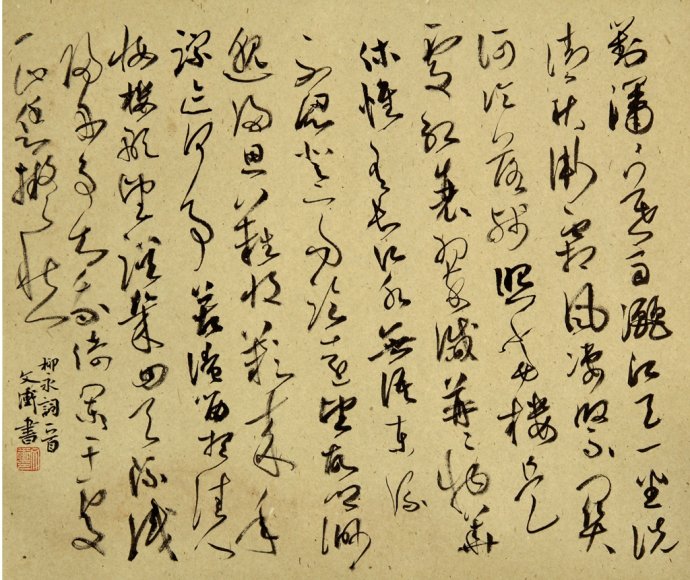 對瀟々暮雨灑江天一番洗
清秋漸霜風凄緊關
河冷落殘照當樓是
處紅衰翠減苒々物華
休惟有長江水無語東流
不忍登高臨遠望故鄉渺
邈歸思難收嘆年來
踪迹何事苦淹留想佳人
妝樓顒望誤幾回天際識
歸舟爭知我倚闌干處
正恁凝愁
柳永詞一首
文 書